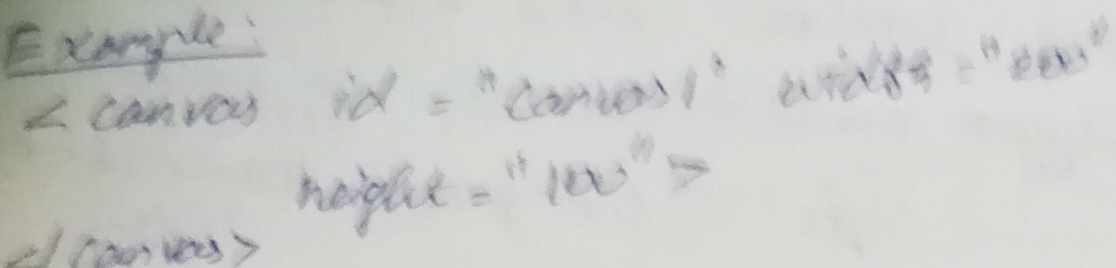 Example:
< canvas id = "canvas1" width = "200"
height = "100" >
</canvas>